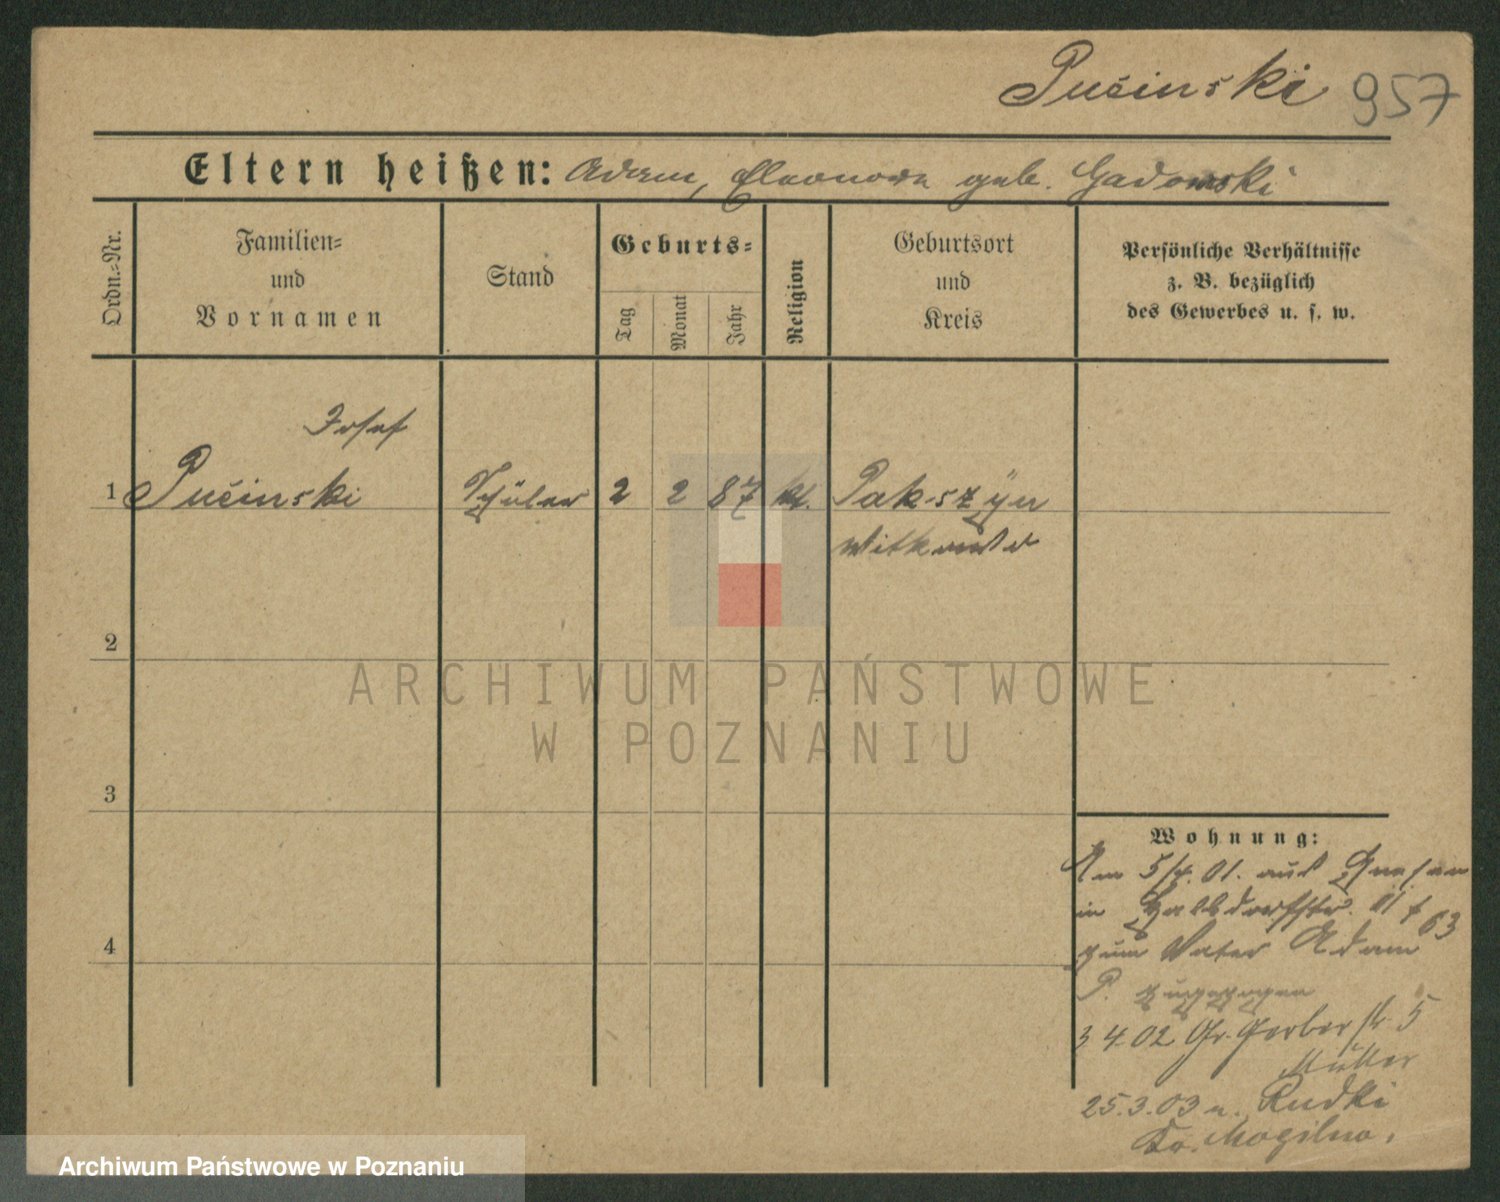 Pučinski 957
Eltern heißen: Adam, Eleonora geb. Gadomski
Ordn.-Nr.
Familien-
und
Vornamen
Stand
Geburts-
Tag
Monat
Jahr
Religion
Geburtsort
und
Kreis
Persönliche Verhältnisse
z. B. bezüglich
des Gewerbes u. s. w.
Josef
1 Pučinski Schüler 2 2 87 kt. Pakszyn
Witkowo
2
ARCHIWUM PAŃSTWOWE
W POZNANIU
3
Wohnung:
Am 5/4. 01. aus Gnesen
in Halbdorfstr.
4
zum Vater Adam
P. zugezogen
3 4. 02 Gr. Gerberstr 5
Müller
25.3.03 n. Rudki
Kr. Mogilno.
Archiwum Państwowe w Poznaniu